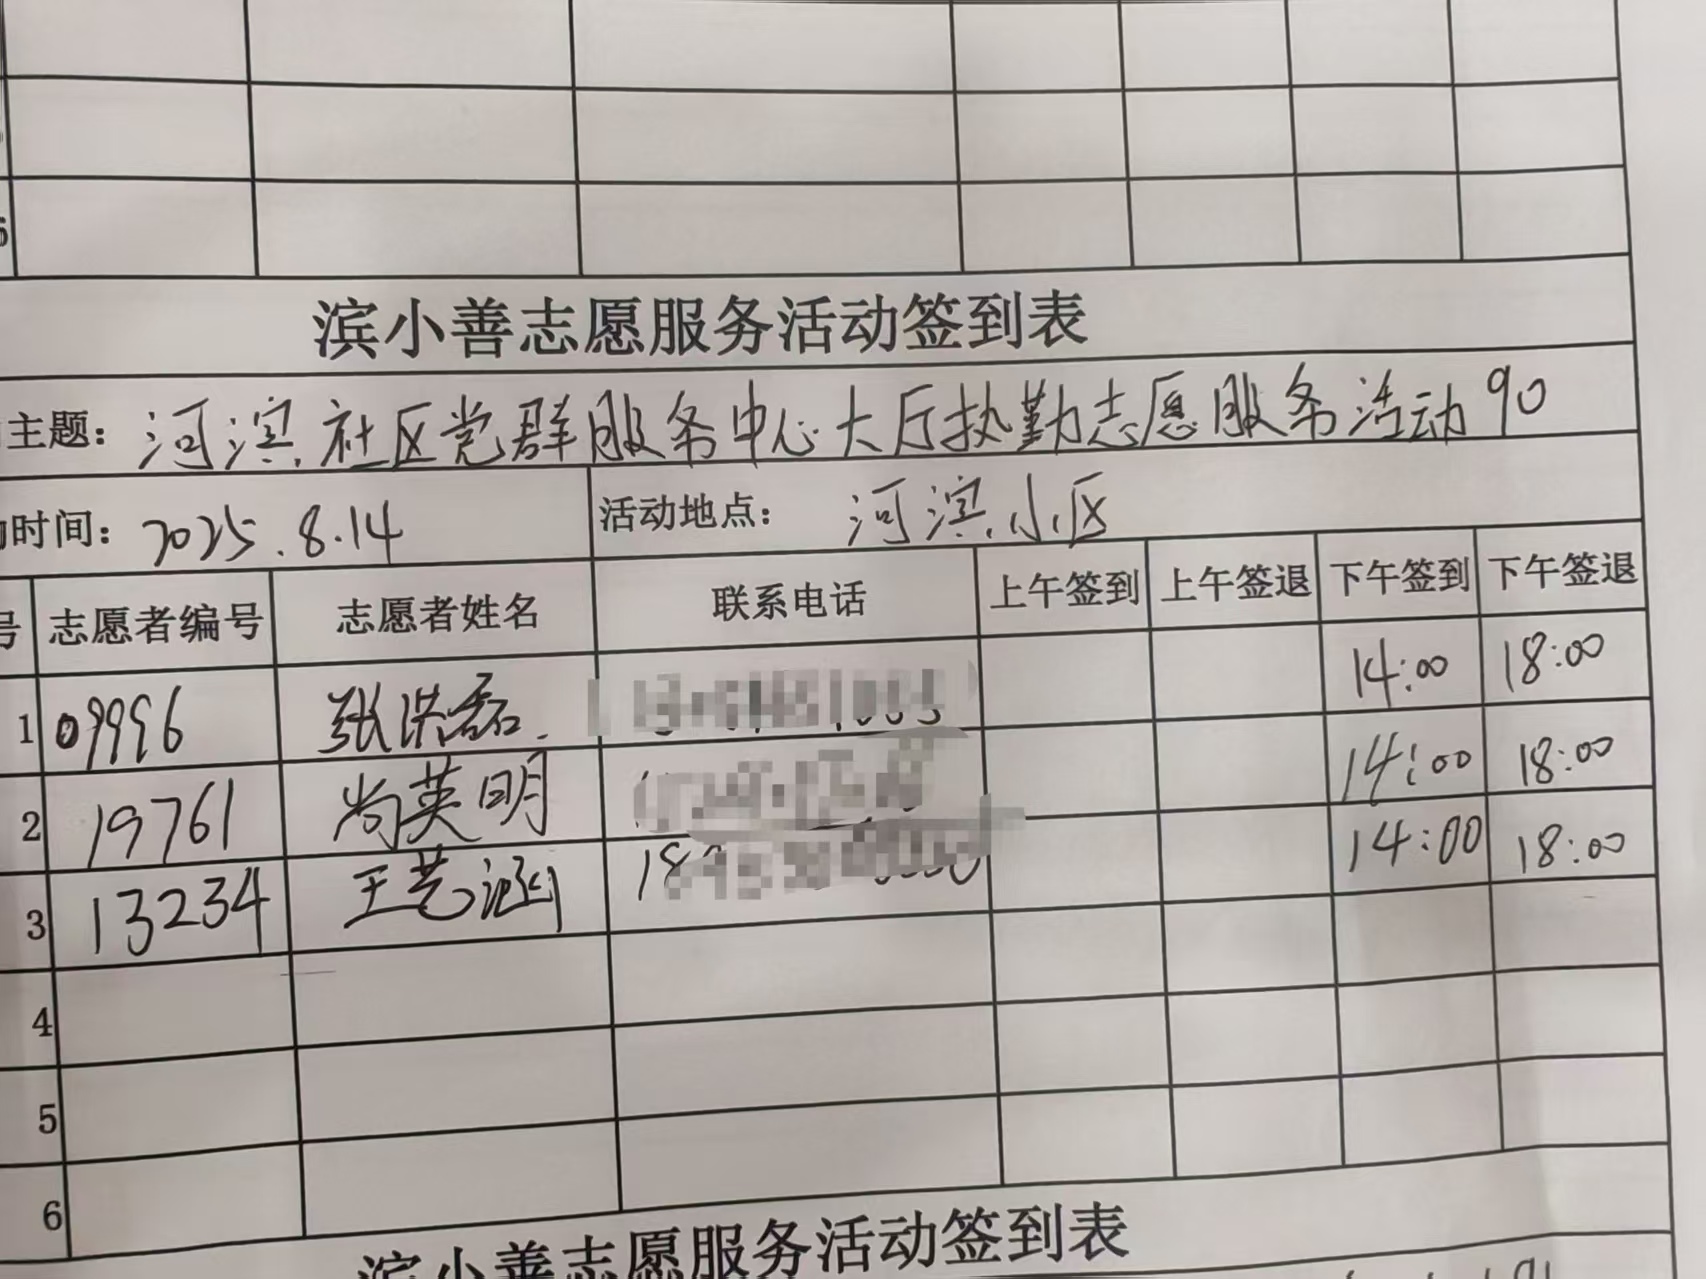 滨小善志愿服务活动签到表
主题：河滨社区党群服务中心大厅执勤志愿服务活动90
时间：2025.8.14 活动地点：河滨小区
号 志愿者编号 志愿者姓名 联系电话 上午签到 上午签退 下午签到 下午签退
1 09996 张洪磊 14:00 18:00
2 19761 尚英明 14:00 18:00
3 13234 王艺涵 18 14:00 18:00
4
5
6
滨小善志愿服务活动签到表